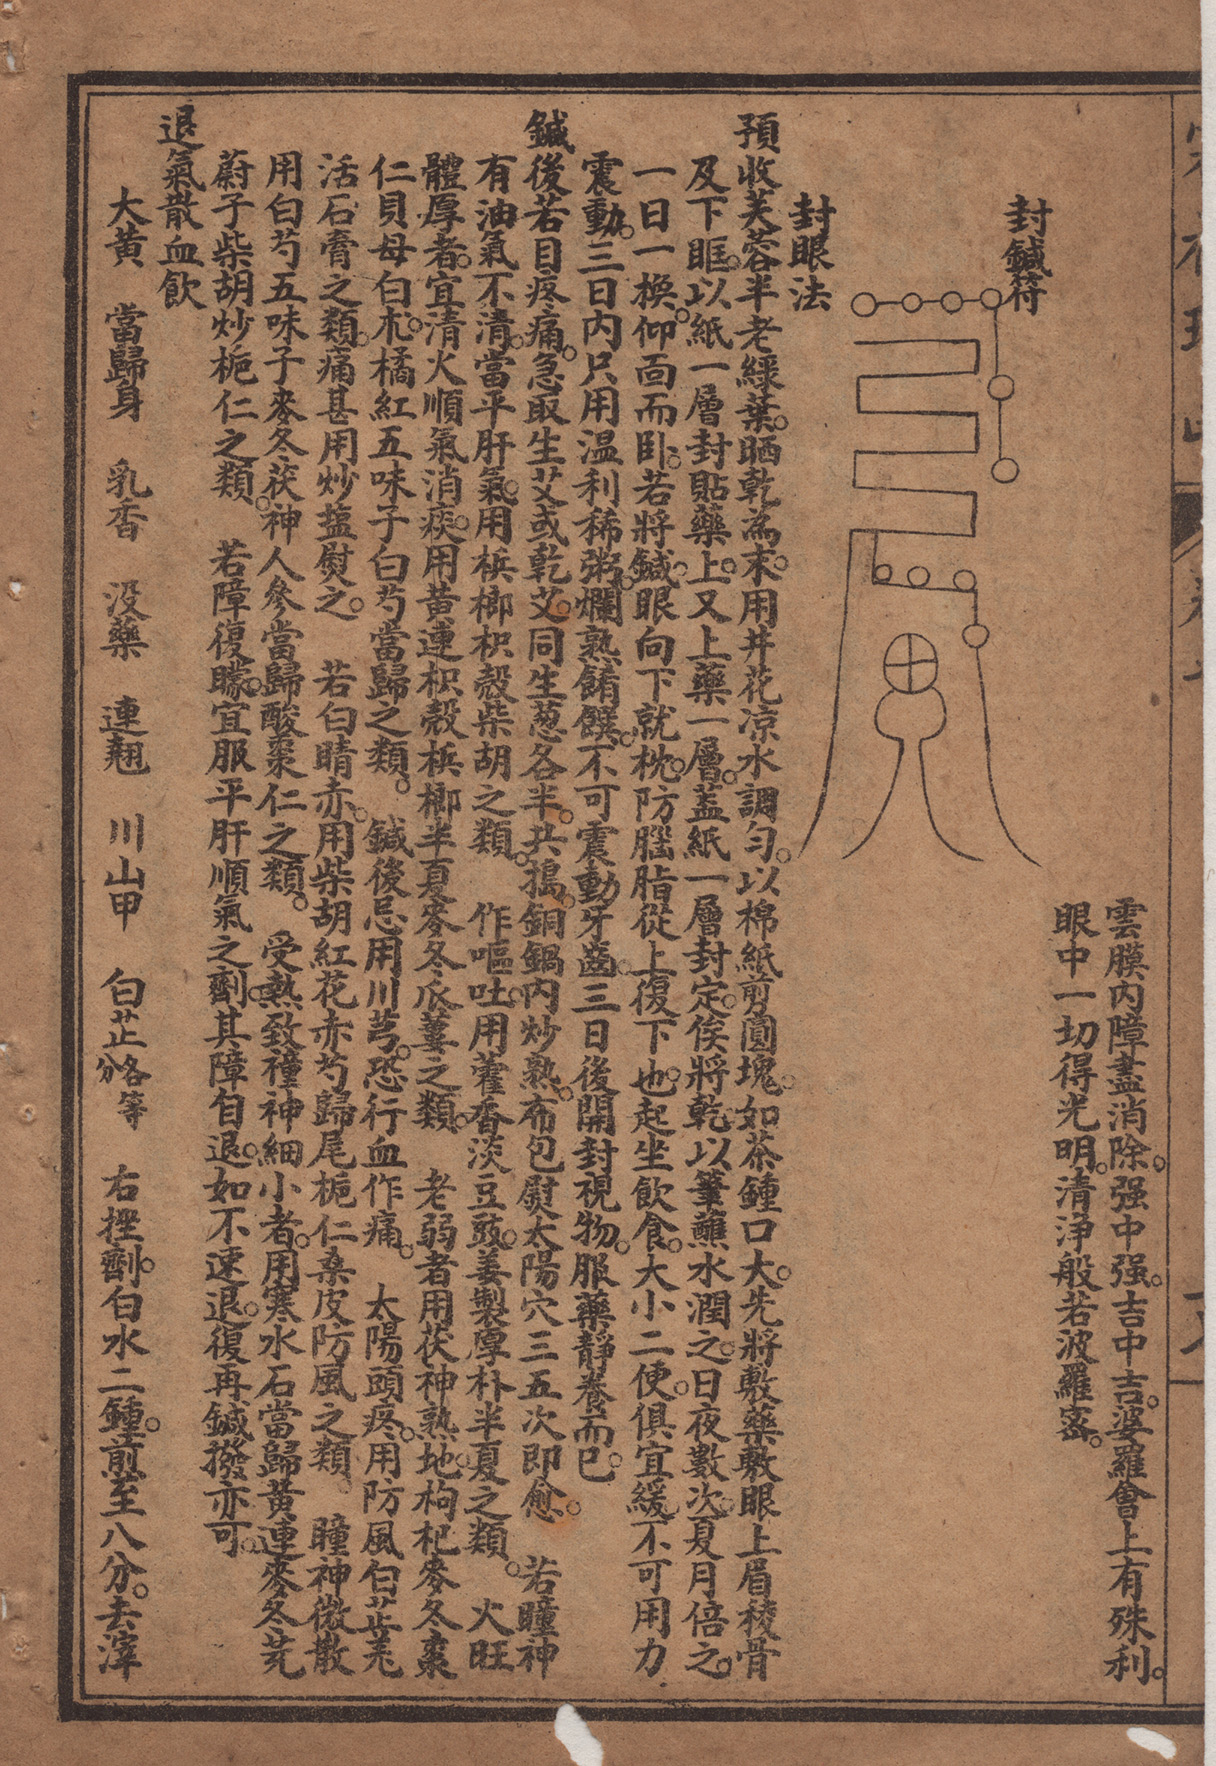 雲膜内障盡消除。强中强。吉中吉。婆羅會上有殊利。
眼中一切得光明。清淨般若波羅蜜。
封鍼符
封眼法
預收芙蓉半老緑葉。晒乾為末。用井花凉水調勻。以棉紙剪圓塊。如茶鍾口大。先將敷藥敷眼上眉稜骨
及下眶。以紙一層封貼藥上。又上藥一層。蓋紙一層封定。俟將乾以筆蘸水潤之。日夜數次。夏月倍之。
一日一換。仰面而卧。若將鍼眼向下就枕。防腦脂從上復下也。起坐飲食。大小二便。俱宜緩不可用力
震動。三日内只用温利稀粥。爛熟餚饌。不可震動牙齒。三日後開封視物。服藥靜養而已。
鍼後若目疼痛。急取生艾或乾艾。同生葱各半。共搗。銅鍋内炒熟。布包熨太陽穴三五次即愈。　若瞳神
有油氣不清。當平肝氣。用梹榔枳殼柴胡之類。　作嘔吐。用藿香淡豆豉。姜製厚朴半夏之類。　火旺
體厚者。宜清火順氣消痰。用黄連枳殼梹榔半夏麥冬瓜蔞之類。　老弱者用茯神熟地。枸杞麥冬棗
仁貝母白朮。橘紅五味子白芍當歸之類。　鍼後忌用川芎。恐行血作痛。　太陽頭疼。用防風白芷羌
活石膏之類。痛甚用炒塩熨之。　若白睛赤。用柴胡紅花赤芍歸尾梔仁桑皮防風之類。　瞳神微散
用白芍五味子麥冬茯神人參當歸酸棗仁之類。　受熱致瞳神細小者。用寒水石當歸黄連麥冬茺
蔚子柴胡炒梔仁之類。　若障復矇。宜服平肝順氣之劑。其障自退。如不速退。復再鍼撥亦可。
退氣散血飲
大黄　當歸身　乳香　没藥　連翹　川山甲　白芷各等分　右挫劑。白水二鍾。煎至八分。去滓